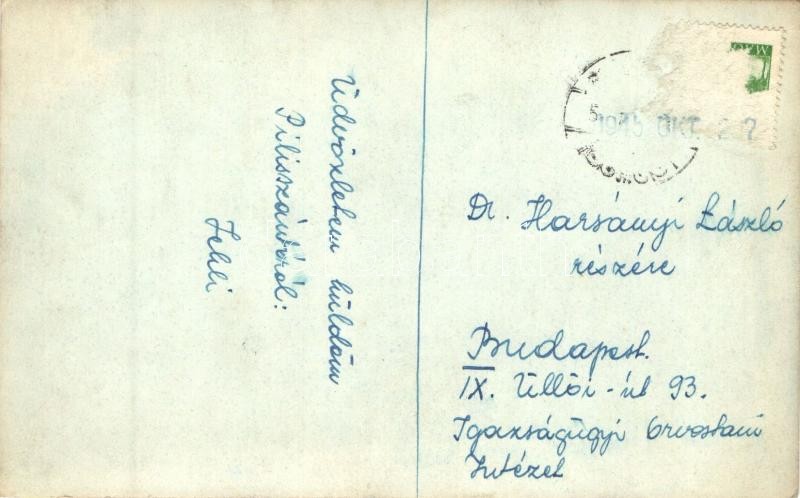 Üdvözletem küldöm
Pilisszántóról:
1945 OKT. 2 7
Dr. Harsányi László
részére
Budapest.
IX. Üllői-út 93.
Igazságügyi Orvostani
Intézet